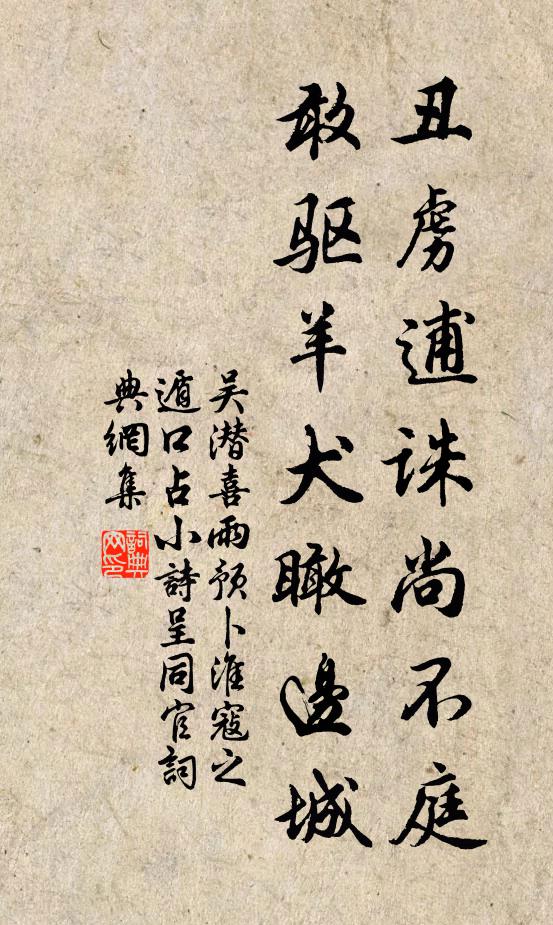 丑虏逋诛尚不庭
敢驱羊犬瞰邊城
吴潜喜雨预卜淮寇之
遁口占小詩呈同官詞
典網集
詞典网印